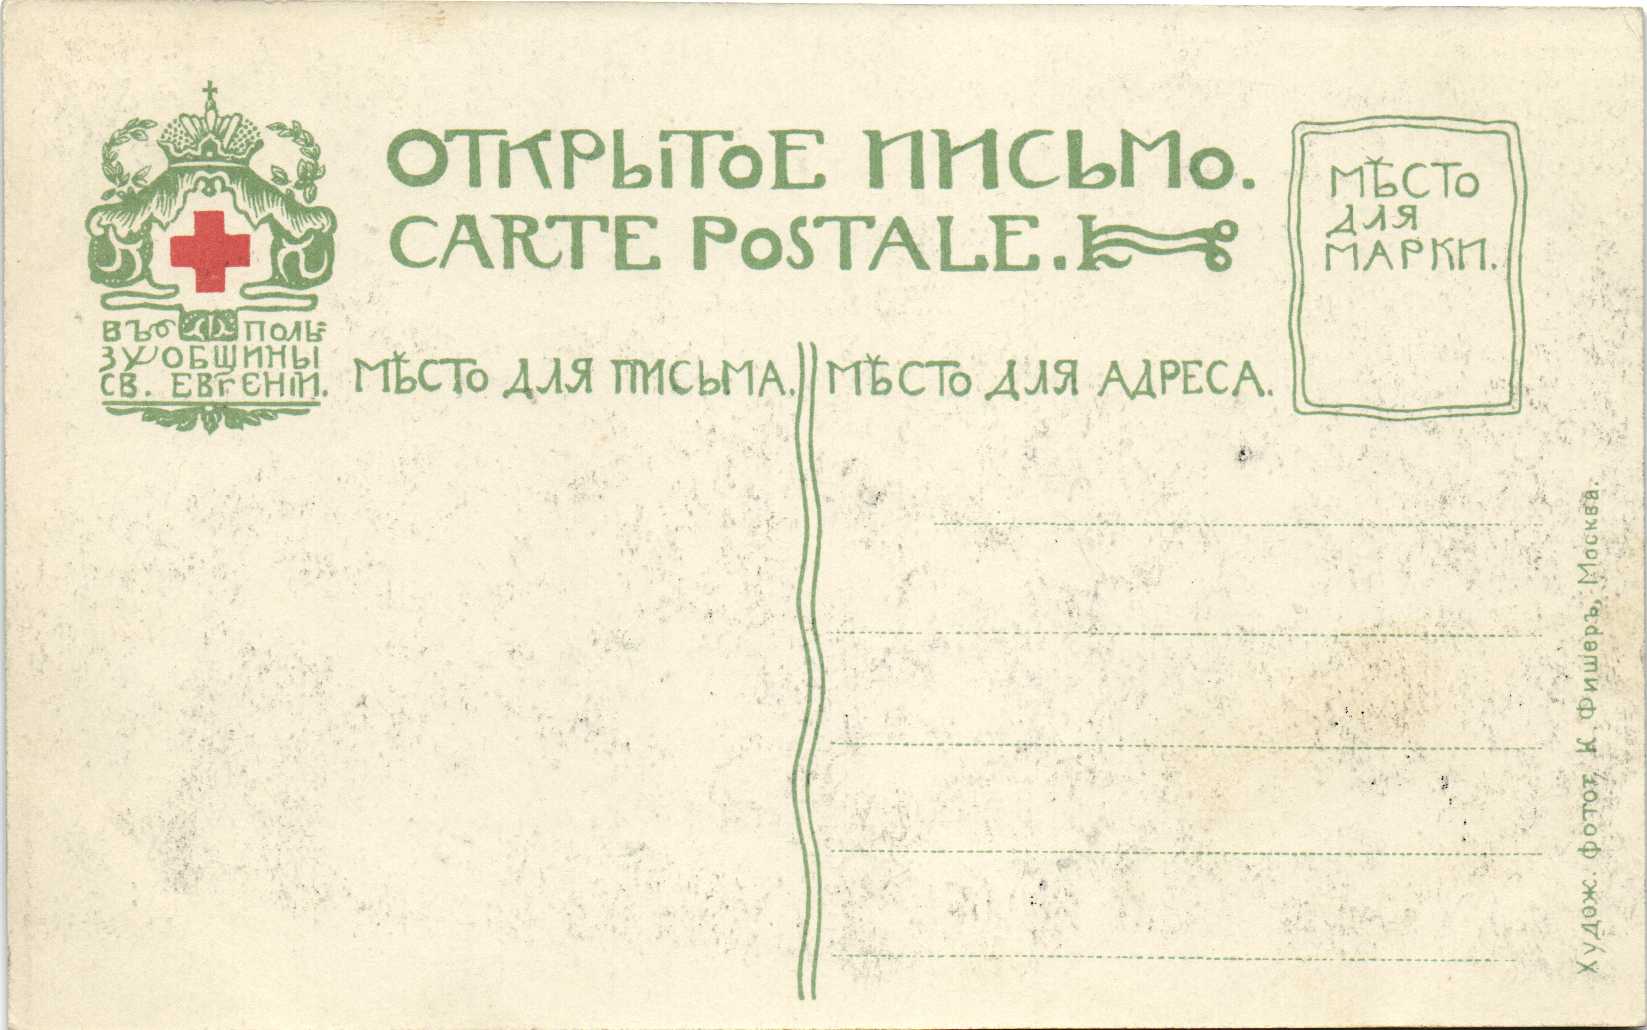 ОТКРЫТОЕ ПИСЬМО.
CARTE POSTALE.
МѢСТО
ДЛЯ
МАРКИ.
ВЪ ПОЛЬ-
ЗУ ОБЩИНЫ
СВ. ЕВГЕНІИ.
МѢСТО ДЛЯ ПИСЬМА.
МѢСТО ДЛЯ АДРЕСА.
Худож. фотот. К. Фишеръ, Москва.